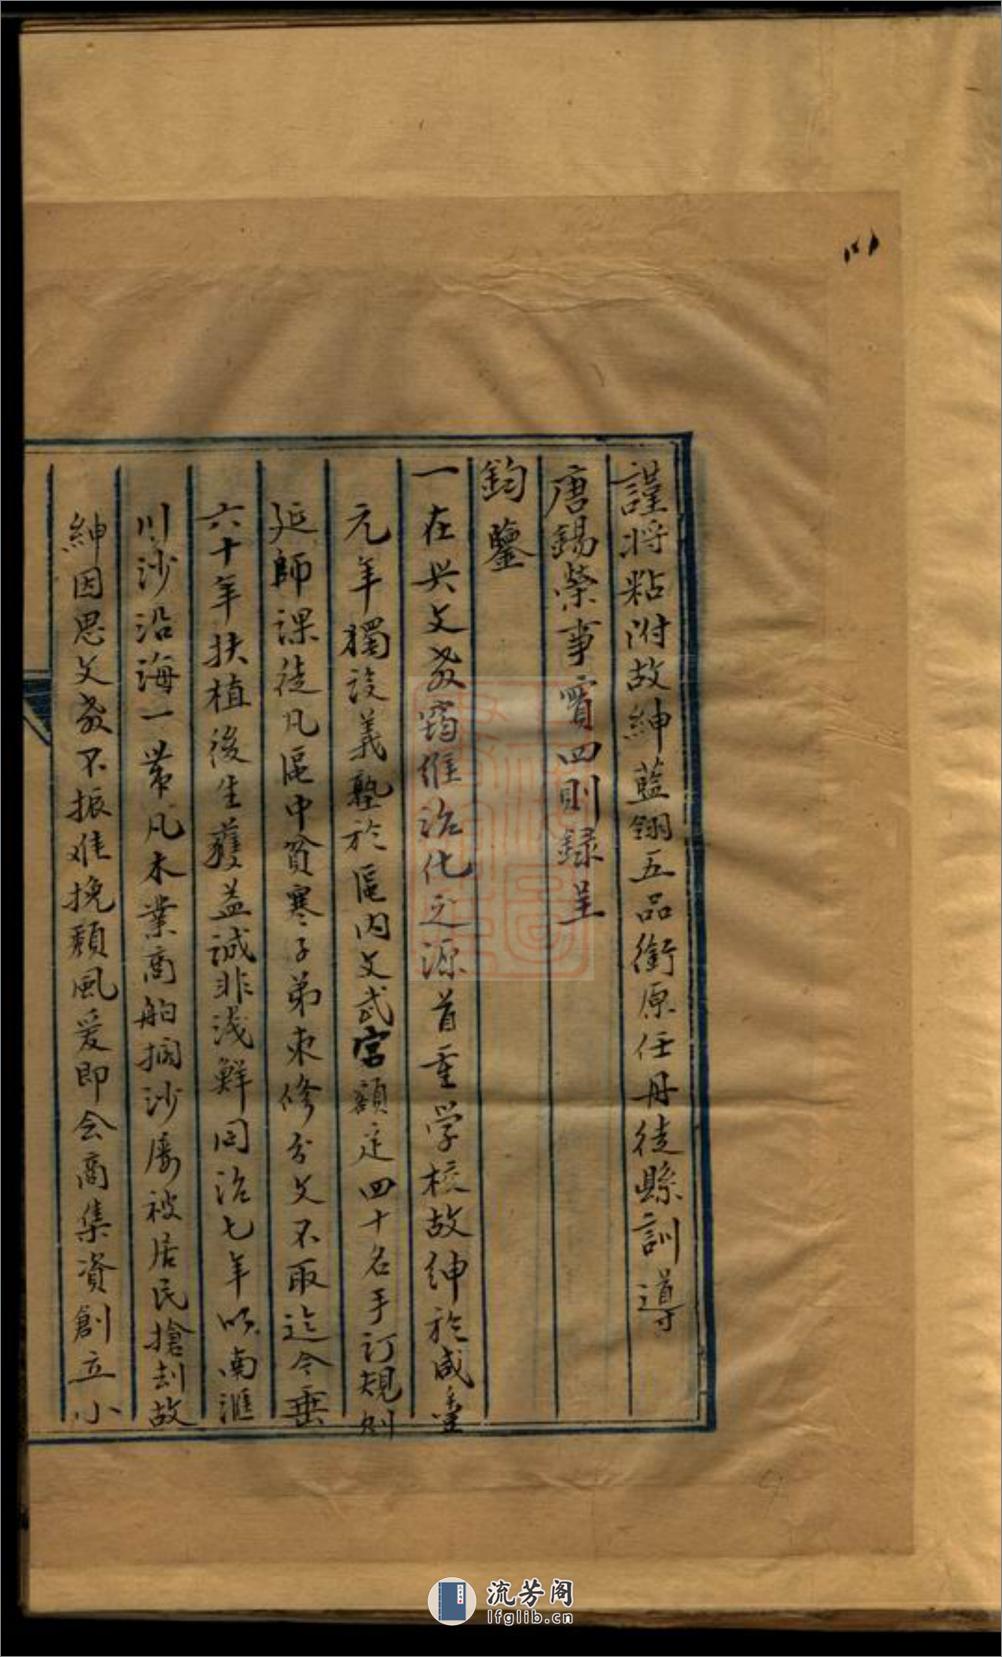 謹將粘附故紳藍翎五品銜原任丹徒縣訓導
唐錫榮事實四則録呈
鈞鑒
一在興文教竊維治化之源首重学校故紳於咸豊
元年獨設義塾於區内文武宫額定四十名手訂規則
延師課徒凡區中貧寒子弟束修分文不取迄今垂
六十年扶植後生獲益誠非浅鮮同治七年以南滙
川沙沿海一帶凡木業商船擱沙屢被居民搶刦故
紳因思文教不振难挽頽風爰即会商集資創立小
流芳阁
lfglib.cn